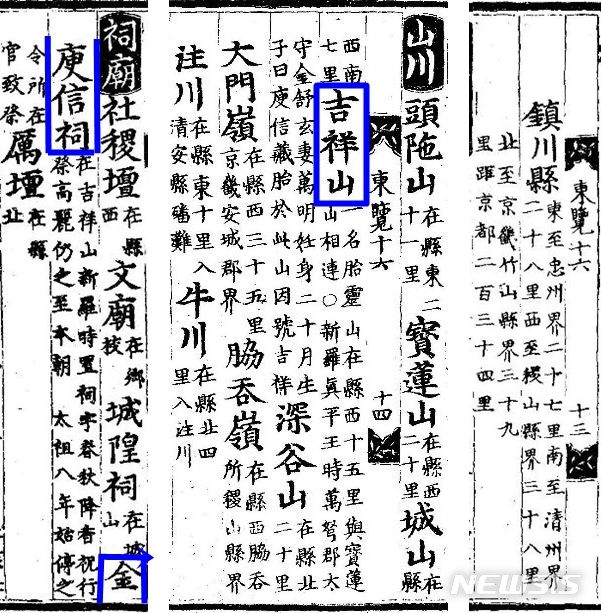 東覽十六
十三
鎮川縣
東至忠州界二十七里南至清州界
二十八里西至稷山縣界三十八里
北至京畿竹山縣界三十九
里距京都二百三十四里
山川 頭陁山 在縣東二十一里 寶蓮山 在縣西二十里 城山 在縣
東覽十六
十四
西南七里 吉祥山 一名胎靈山在縣西十五里與寶蓮山相連○新羅眞平王時萬弩郡太
守金舒玄妻萬明妊身二十月生子曰庾信藏胎於此山因號吉祥 深谷山 在縣北二十里
大門嶺 在縣西三十五里京畿安城郡界 脇呑嶺 在縣西脇呑所稷山縣界
注川 在縣東十里入清安縣磻灘 牛川 在縣北四里入注川
祠廟 社稷壇 在縣西 文廟 在鄉校 城隍祠 在城山 金
庾信祠 在吉祥山新羅時置祠宇春秋降香祝行祭高麗仍之至本朝 太祖八年始停之
令所在官致祭 厲壇 在縣北
NEWSIS